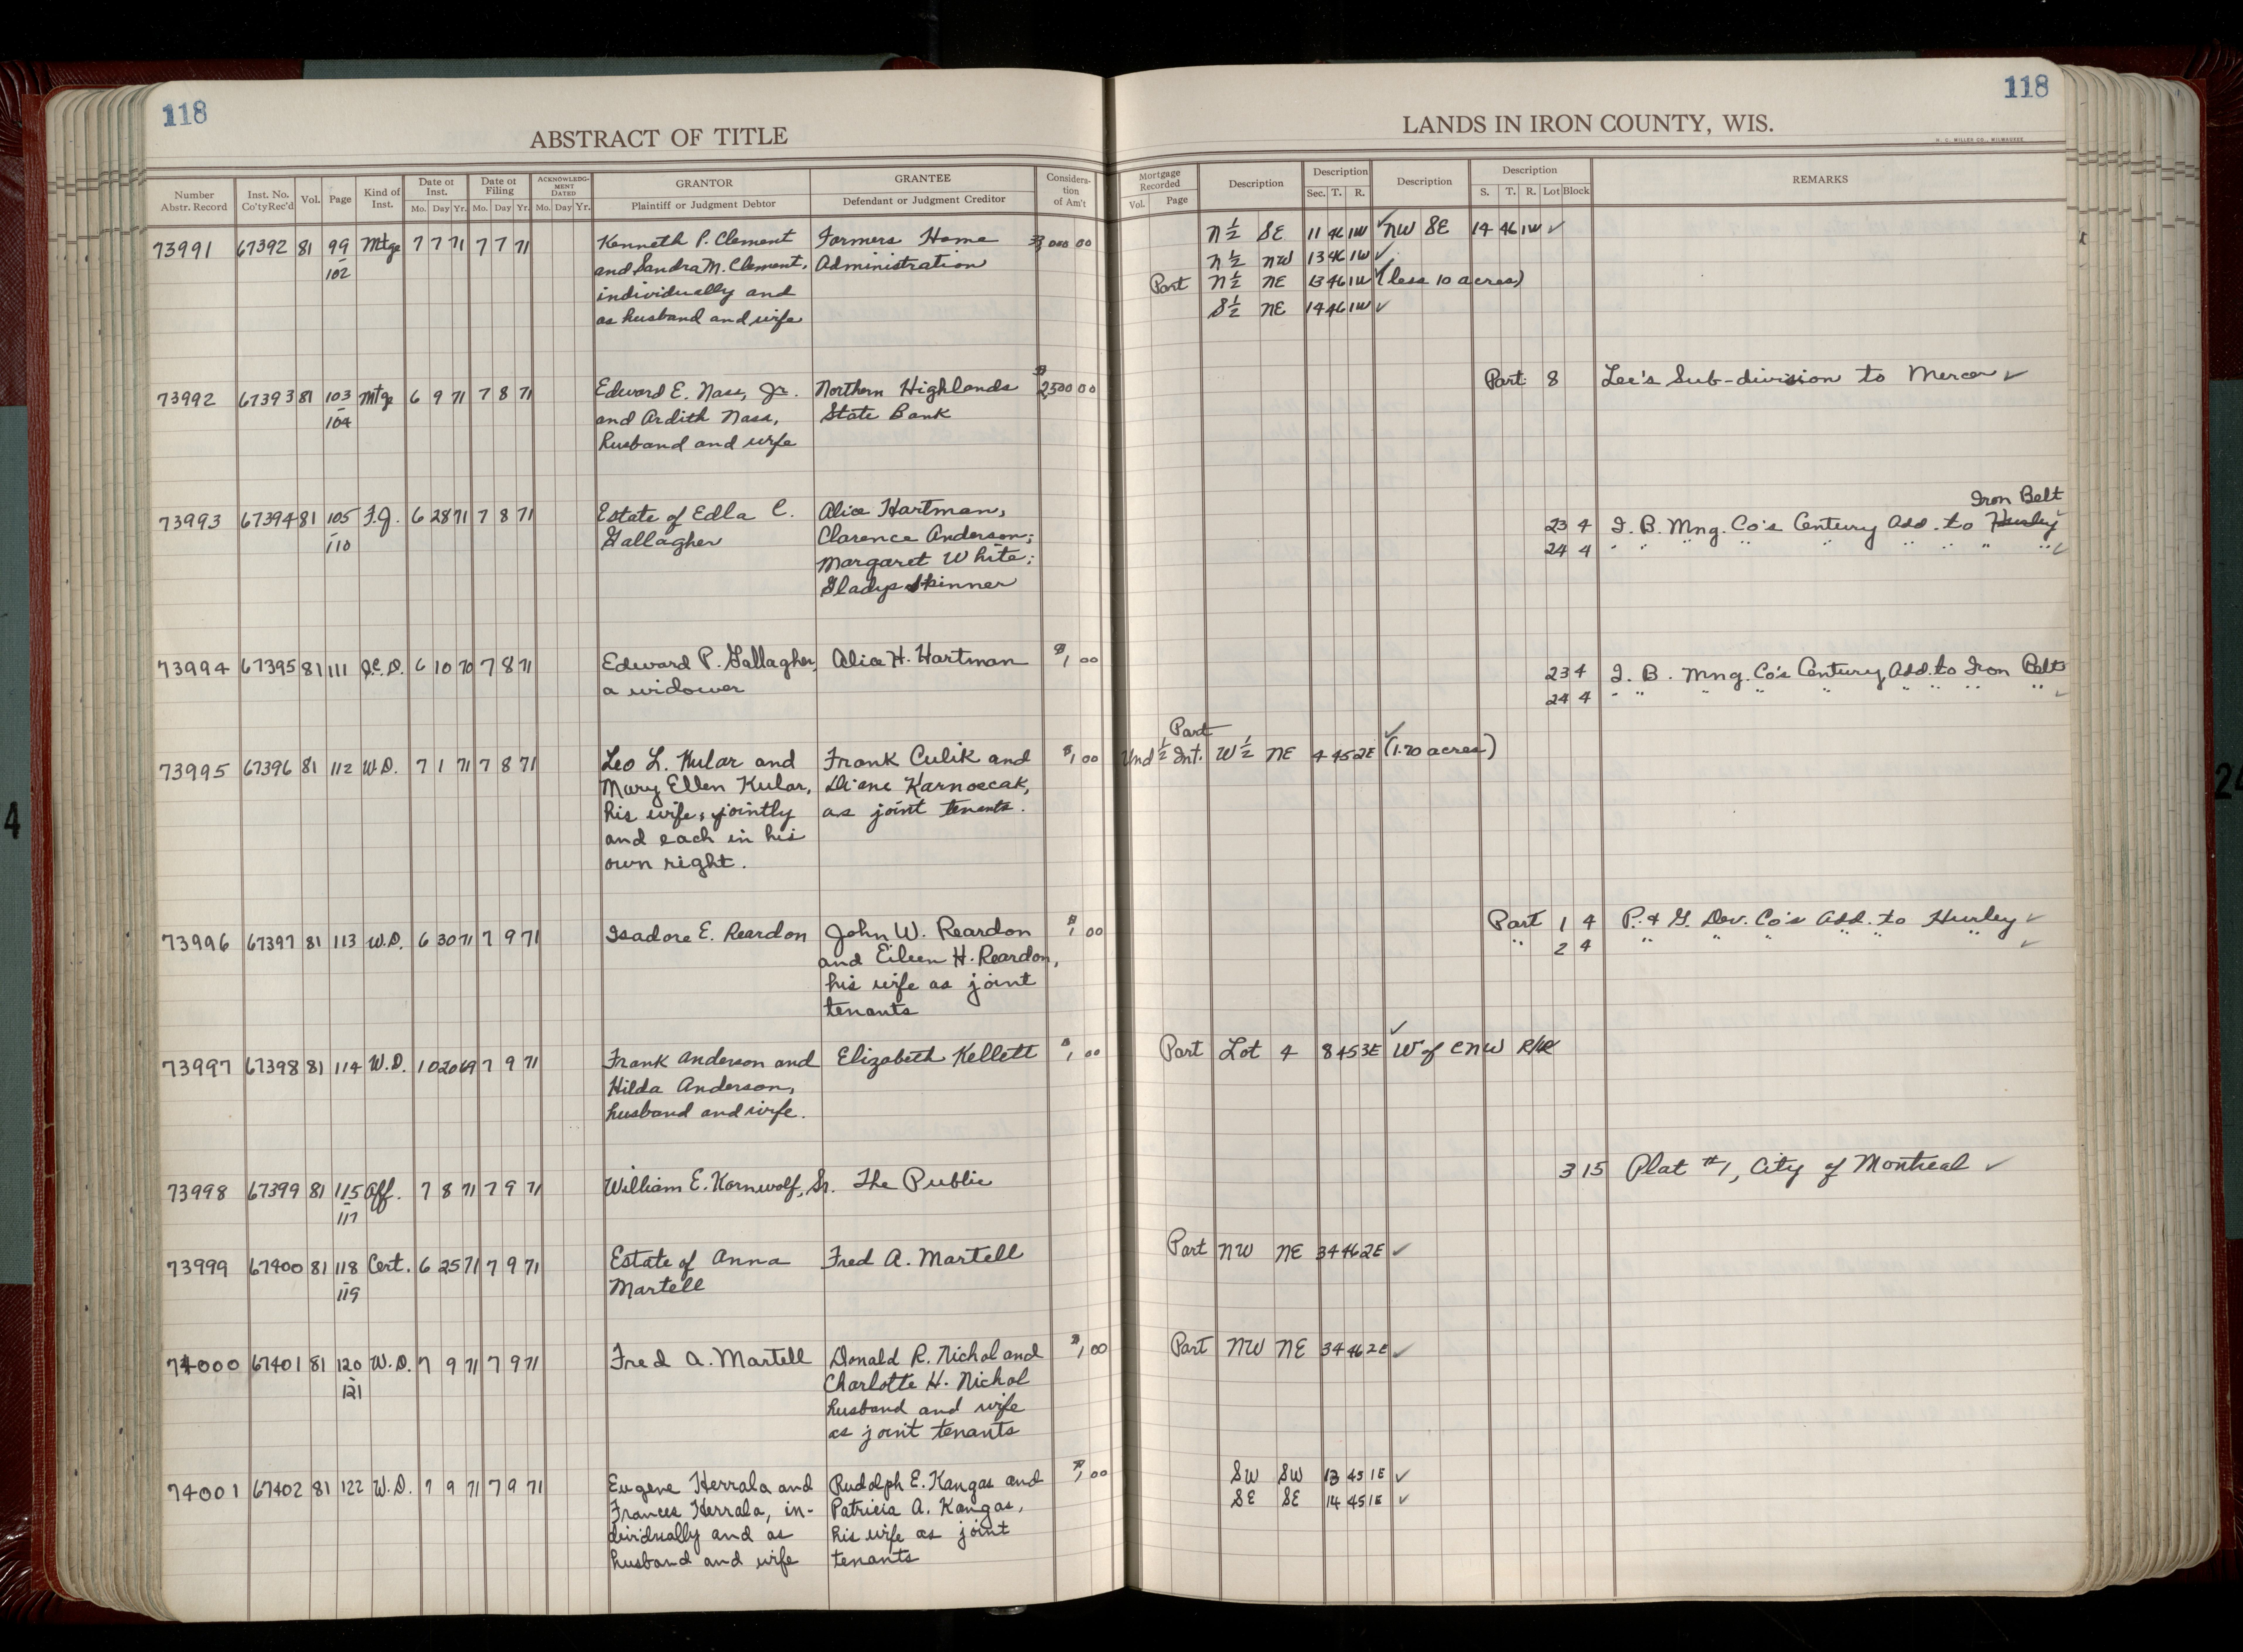 118
118
ABSTRACT OF TITLE
LANDS IN IRON COUNTY, WIS.
H. C. MILLER CO., MILWAUKEE
Number Abstr. Record | Inst. No. Co'ty Rec'd | Vol. | Page | Kind of Inst. | Date of Inst. Mo. Day Yr. | Date of Filing Mo. Day Yr. | ACKNOWLEDGMENT DATED Mo. Day Yr. | GRANTOR Plaintiff or Judgment Debtor | GRANTEE Defendant or Judgment Creditor | Consideration of Am't | Mortgage Recorded Vol. Page | Description | Description Sec. T. R. | Description | Description S. T. R. Lot Block | REMARKS
73991 67392 81 99 Mtge 7 7 71 7 7 71 Kenneth P. Clement Farmers Home 000 00 N½ SE 11 46 1W ✓ NW SE 14 46 1W ✓
- 102 and Sandra M. Clement, Administration N½ NW 13 46 1W ✓
individually and Part N½ NE 13 46 1W ✓ (less 10 acres)
as husband and wife S½ NE 14 46 1W ✓
73992 67393 81 103 Mtge 6 9 71 7 8 71 Edward E. Nass, Jr. Northern Highlands $2500 00 Part 8 Lee's Sub-division to Mercer ✓
- 104 and Ardith Nass, State Bank
husband and wife
Iron Belt
73993 67394 81 105 F.J. 6 28 71 7 8 71 Estate of Edla C. Alice Hartman, 23 4 I. B. Mng. Co's Century Add. to Hurley ✓
- 110 Gallagher Clarence Anderson; 24 4 " " " " " " " " ✓
Margaret White;
Gladys Skinner
73994 67395 81 111 Q.C.D. 6 10 70 7 8 71 Edward P. Gallagher, Alice H. Hartman $1 00 23 4 I. B. Mng. Co's Century Add. to Iron Belt
a widower 24 4 " " " " " " " " " ✓
Part ✓
73995 67396 81 112 W.D. 7 1 71 7 8 71 Leo L. Kular and Frank Culik and $1 00 Und ½ Int. W½ NE 4 45 2E (1.70 acres)
Mary Ellen Kular, Diane Karnoscak,
his wife, jointly as joint tenants.
and each in his
own right.
73996 67397 81 113 W.D. 6 30 71 7 9 71 Isadore E. Reardon John W. Reardon $1 00 Part 1 4 P. & G. Dev. Co's Add. to Hurley ✓
and Eileen H. Reardon, " 2 4 " " " " " " ✓
his wife as joint
tenants
73997 67398 81 114 W.D. 10 20 69 7 9 71 Frank Anderson and Elizabeth Kellett $1 00 Part Lot 4 8 45 3E ✓ W of CNW R/W
Hilda Anderson,
husband and wife.
73998 67399 81 115 Aff. 7 8 71 7 9 71 William E. Kornwolf, Sr. The Public 3 15 Plat #1, City of Montreal ✓
- 117
73999 67400 81 118 Cert. 6 25 71 7 9 71 Estate of Anna Fred A. Martell Part NW NE 34 46 2E ✓
- 119 Martell
74000 67401 81 120 W.D. 7 9 71 7 9 71 Fred A. Martell Donald R. Nichol and $1 00 Part NW NE 34 46 2E ✓
- 121 Charlotte H. Nichol
husband and wife
as joint tenants
74001 67402 81 122 W.D. 7 9 71 7 9 71 Eugene Herrala and Rudolph E. Kangas and $1 00 SW SW 13 45 1E ✓
Frances Herrala, in- Patricia A. Kangas, SE SE 14 45 1E ✓
dividually and as his wife as joint
husband and wife tenants
4
24